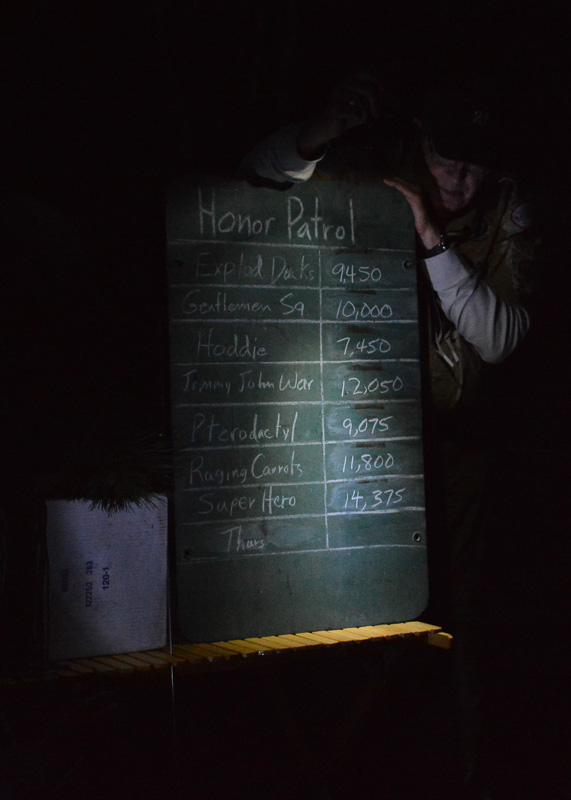 Honor Patrol
Explod Ducks 9,450
Gentlemen Sq 10,000
Hoddie 7,450
Jimmy John War 12,050
Pterodactyl 9,075
Raging Carrots 11,800
Super Hero 14,375
Thurs
120-1